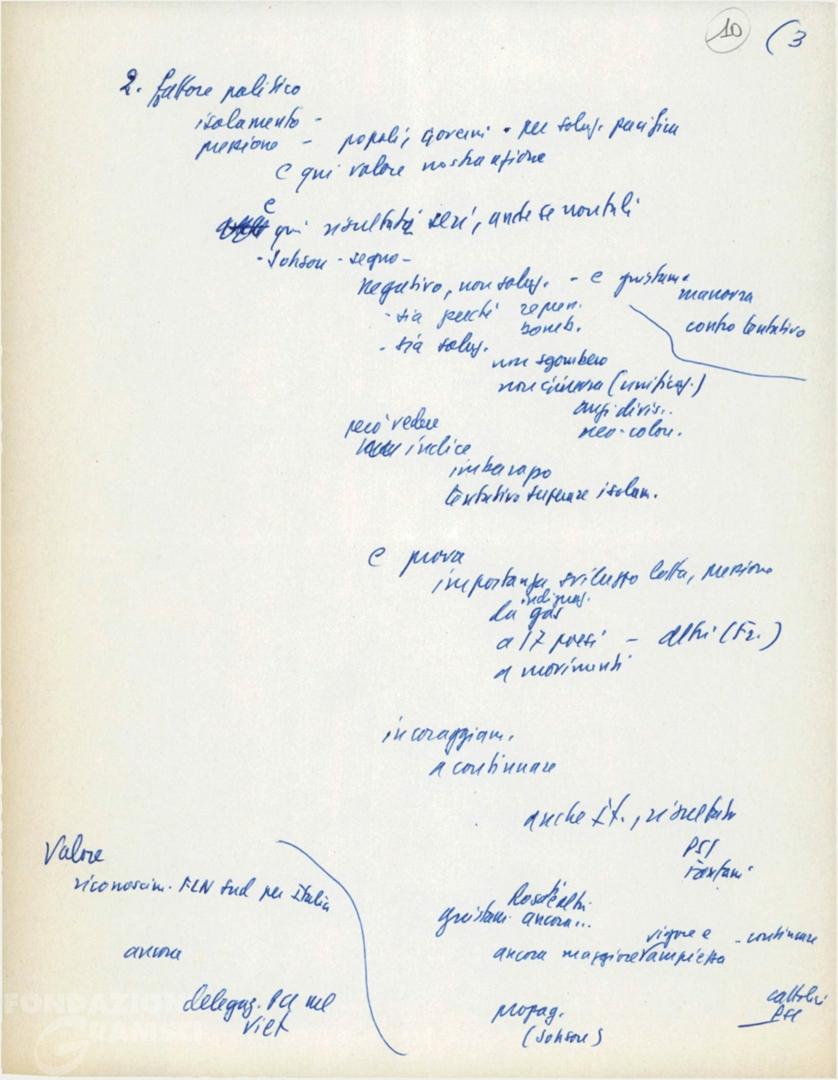 10 (3
2. fattore politico
isolamento -
pressione - popoli, governi • per soluz. pacifica
e qui valore nostra azione
e
qui risultati seri, anche se non tali
- Johson - segno -
negativo, non soluz. - e giustam.
manovra
- sia perché repen.
bomb.
contro tentativo
- sia soluz.
non sgombero
non ginevra (unificaz.)
anzi divis..
neo-colon.
però vedere
indice
imbarazzo
tentativo superare isolam.
e prova
importanza sviluppo lotta, pressione
indignaz.
da gas
a 17 paesi - altri (Fr.)
a movimenti
incoraggiam.
a continuare
anche It., risultati
PSI
Fanfani
Valore
riconoscim. FLN sud per Italia
giustam. ancora...
vigore e - continuare
ancora
ancora maggiore ampiezza
delegaz. PCI nel
Viet
propag.
(Johson)
cattolici
PSI
FONDAZIONE
GRAMSCI